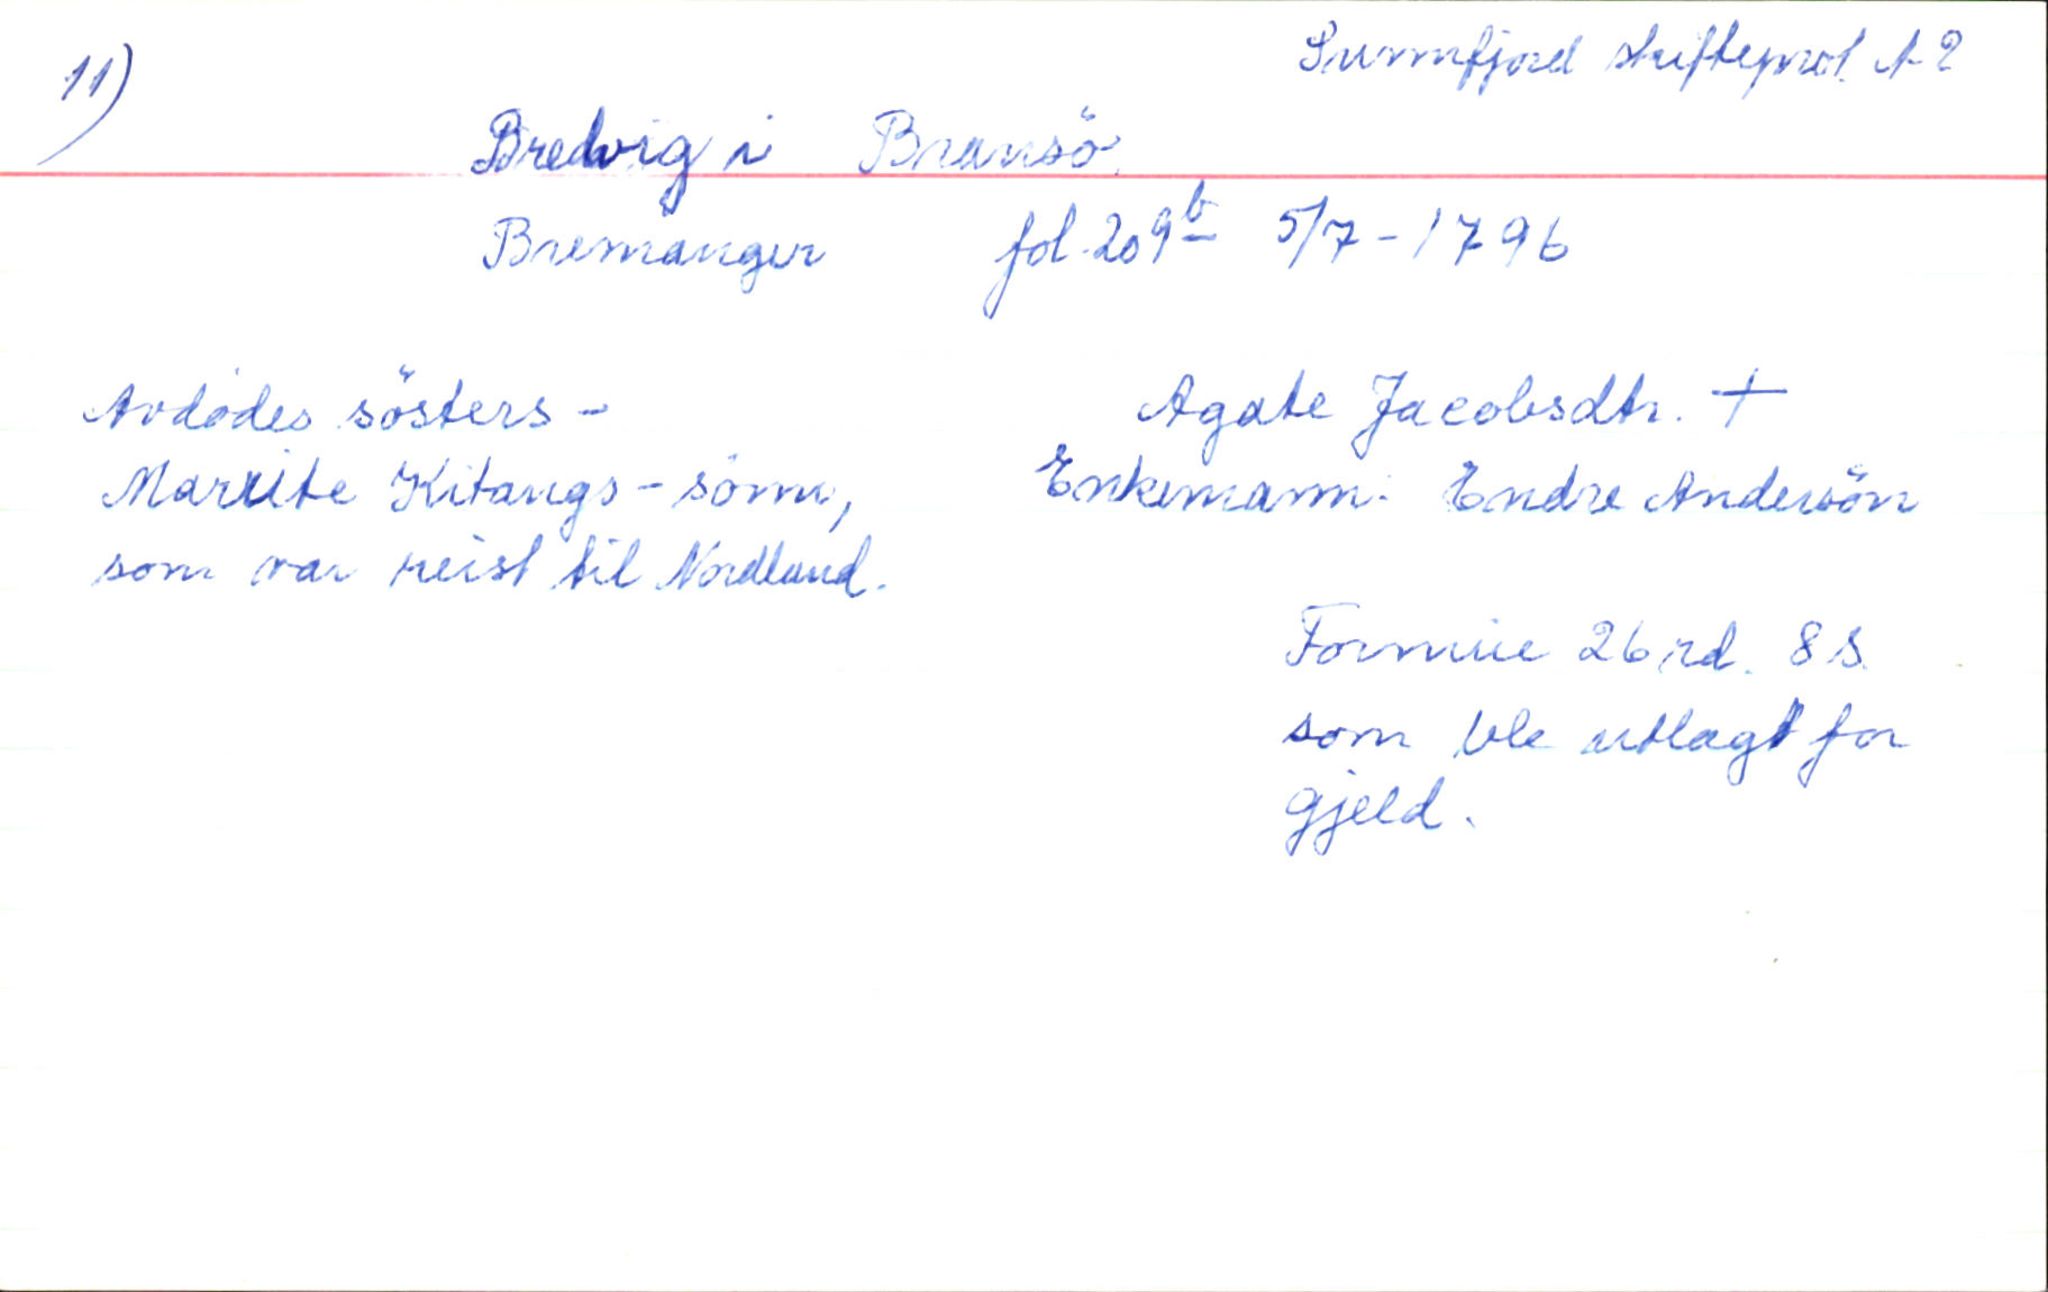 11)
Sunnfjord skifteprot. A 2
Bredvig i Bransö.
Bremanger fol. 209b 5/7-1796
Avdödes sösters -
Marite Kitangs - sönn,
som var reist til Nordland.
Agate Jacobsdtr. +
Enkemann: Endre Andersön
Formue 26 rd. 8 s.
som ble utlagt for
gjeld.